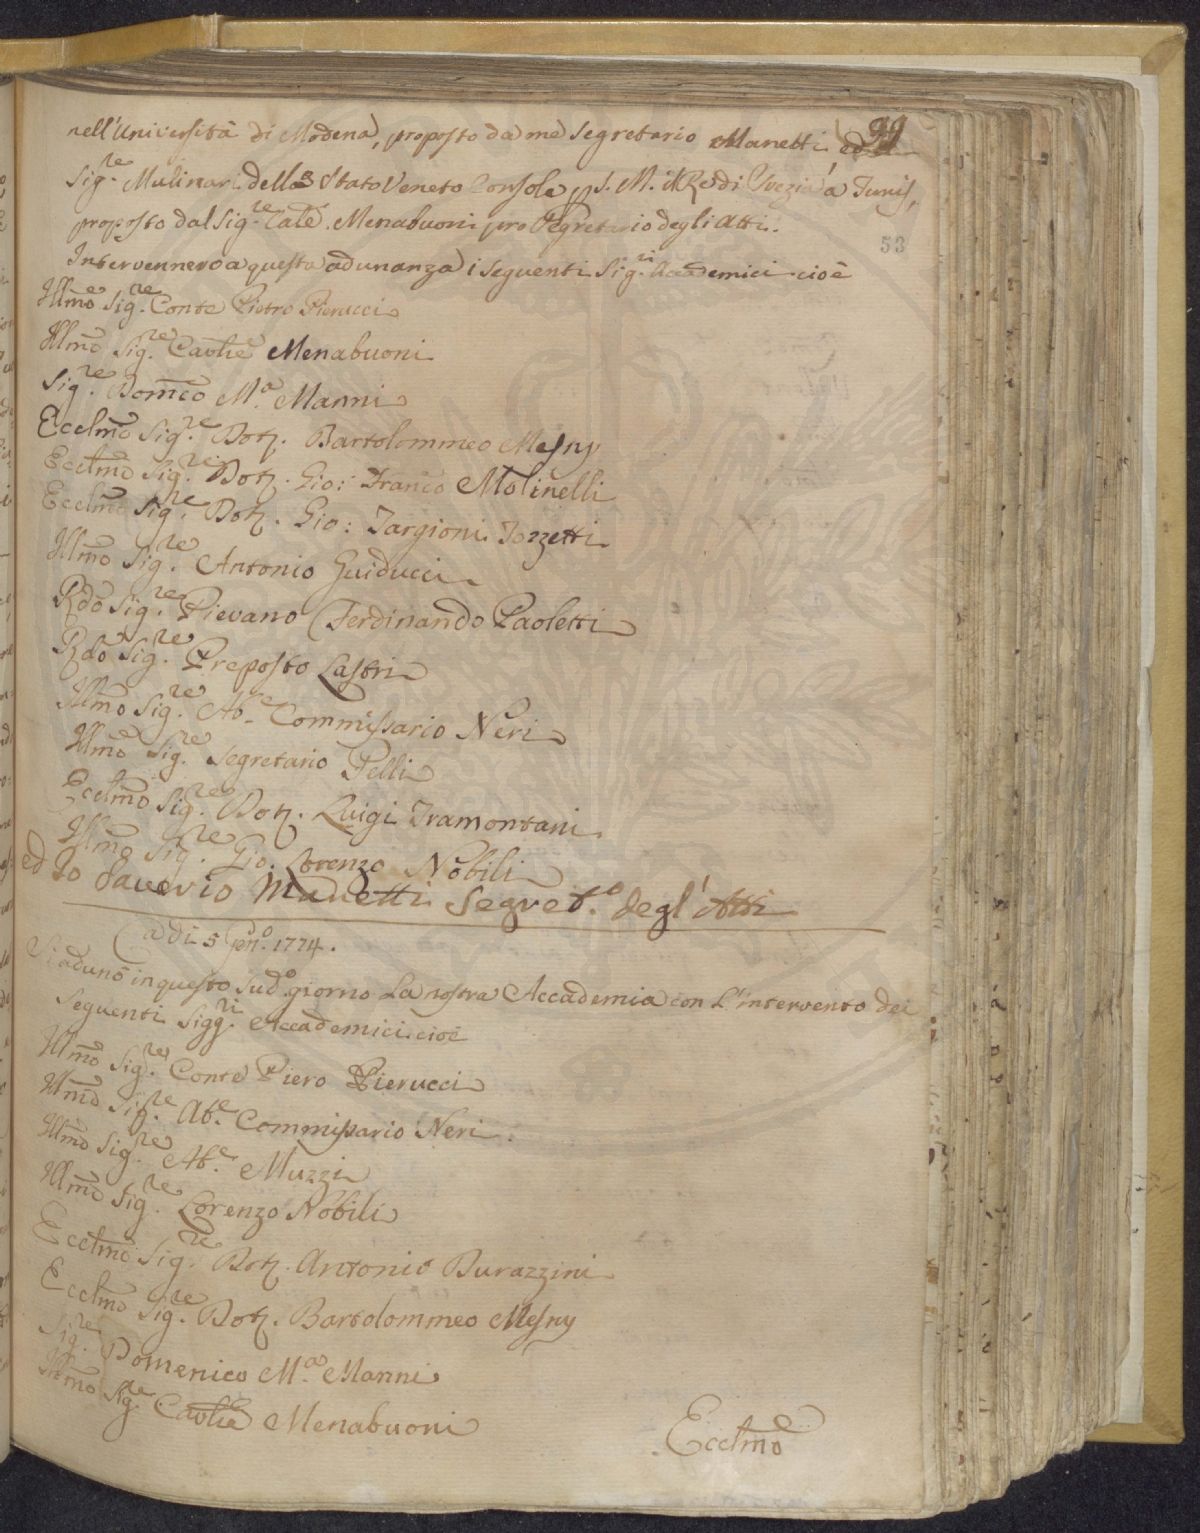 99
nell'Università di Modena, proposto da me Segretario Manetti, ed il
Sig.re Mulinari dello Stato Veneto Console p S. M. il Re di Svezia a Tunis,
proposto dal Sig.re Menabuoni pro Segretario degli Atti.
53
Intervennero a questa adunanza i seguenti Sig.ri Accademici cioè
Illmo Sig.re Conte Pietro Pierucci
Illmo Sig.re Cavlre Menabuoni
Sig.re Domco M.a Manni
Eccelmo Sig.re Dott. Bartolommeo Mesny
Eccelmo Sig.re Dott. Gio: Franco Molinelli
Eccelmo Sig.re Dott. Gio: Targioni Tozzetti
Illmo Sig.re Antonio Guiducci
Rdo Sig.re Pievano Ferdinando Paoletti
Rdo Sig.re Preposto Lastri
Illmo Sig.re Ab.e Commissario Neri
Illmo Sig.re Segretario Pelli
Eccelmo Sig.re Dott. Luigi Tramontani
Illmo Sig.re Gio. Lorenzo Nobili
ed Io Saverio Manetti Segret.o degl'Atti
Adì 5 Gen.o 1774.
Si adunò in questo sud.o giorno la nostra Accademia con l'intervento dei
seguenti Sigg.ri Accademici cioè
Illmo Sig.re Conte Piero Pierucci
Illmo Sig.re Ab.e Commissario Neri
Illmo Sig.re Ab.e Muzzi
Illmo Sig.re Lorenzo Nobili
Eccelmo Sig.re Dott. Antonio Durazzini
Eccelmo Sig.re Dott. Bartolommeo Mesny
Sig.re Domenico M.a Manni
Illmo Sig.re Cavlre Menabuoni
Eccelmo